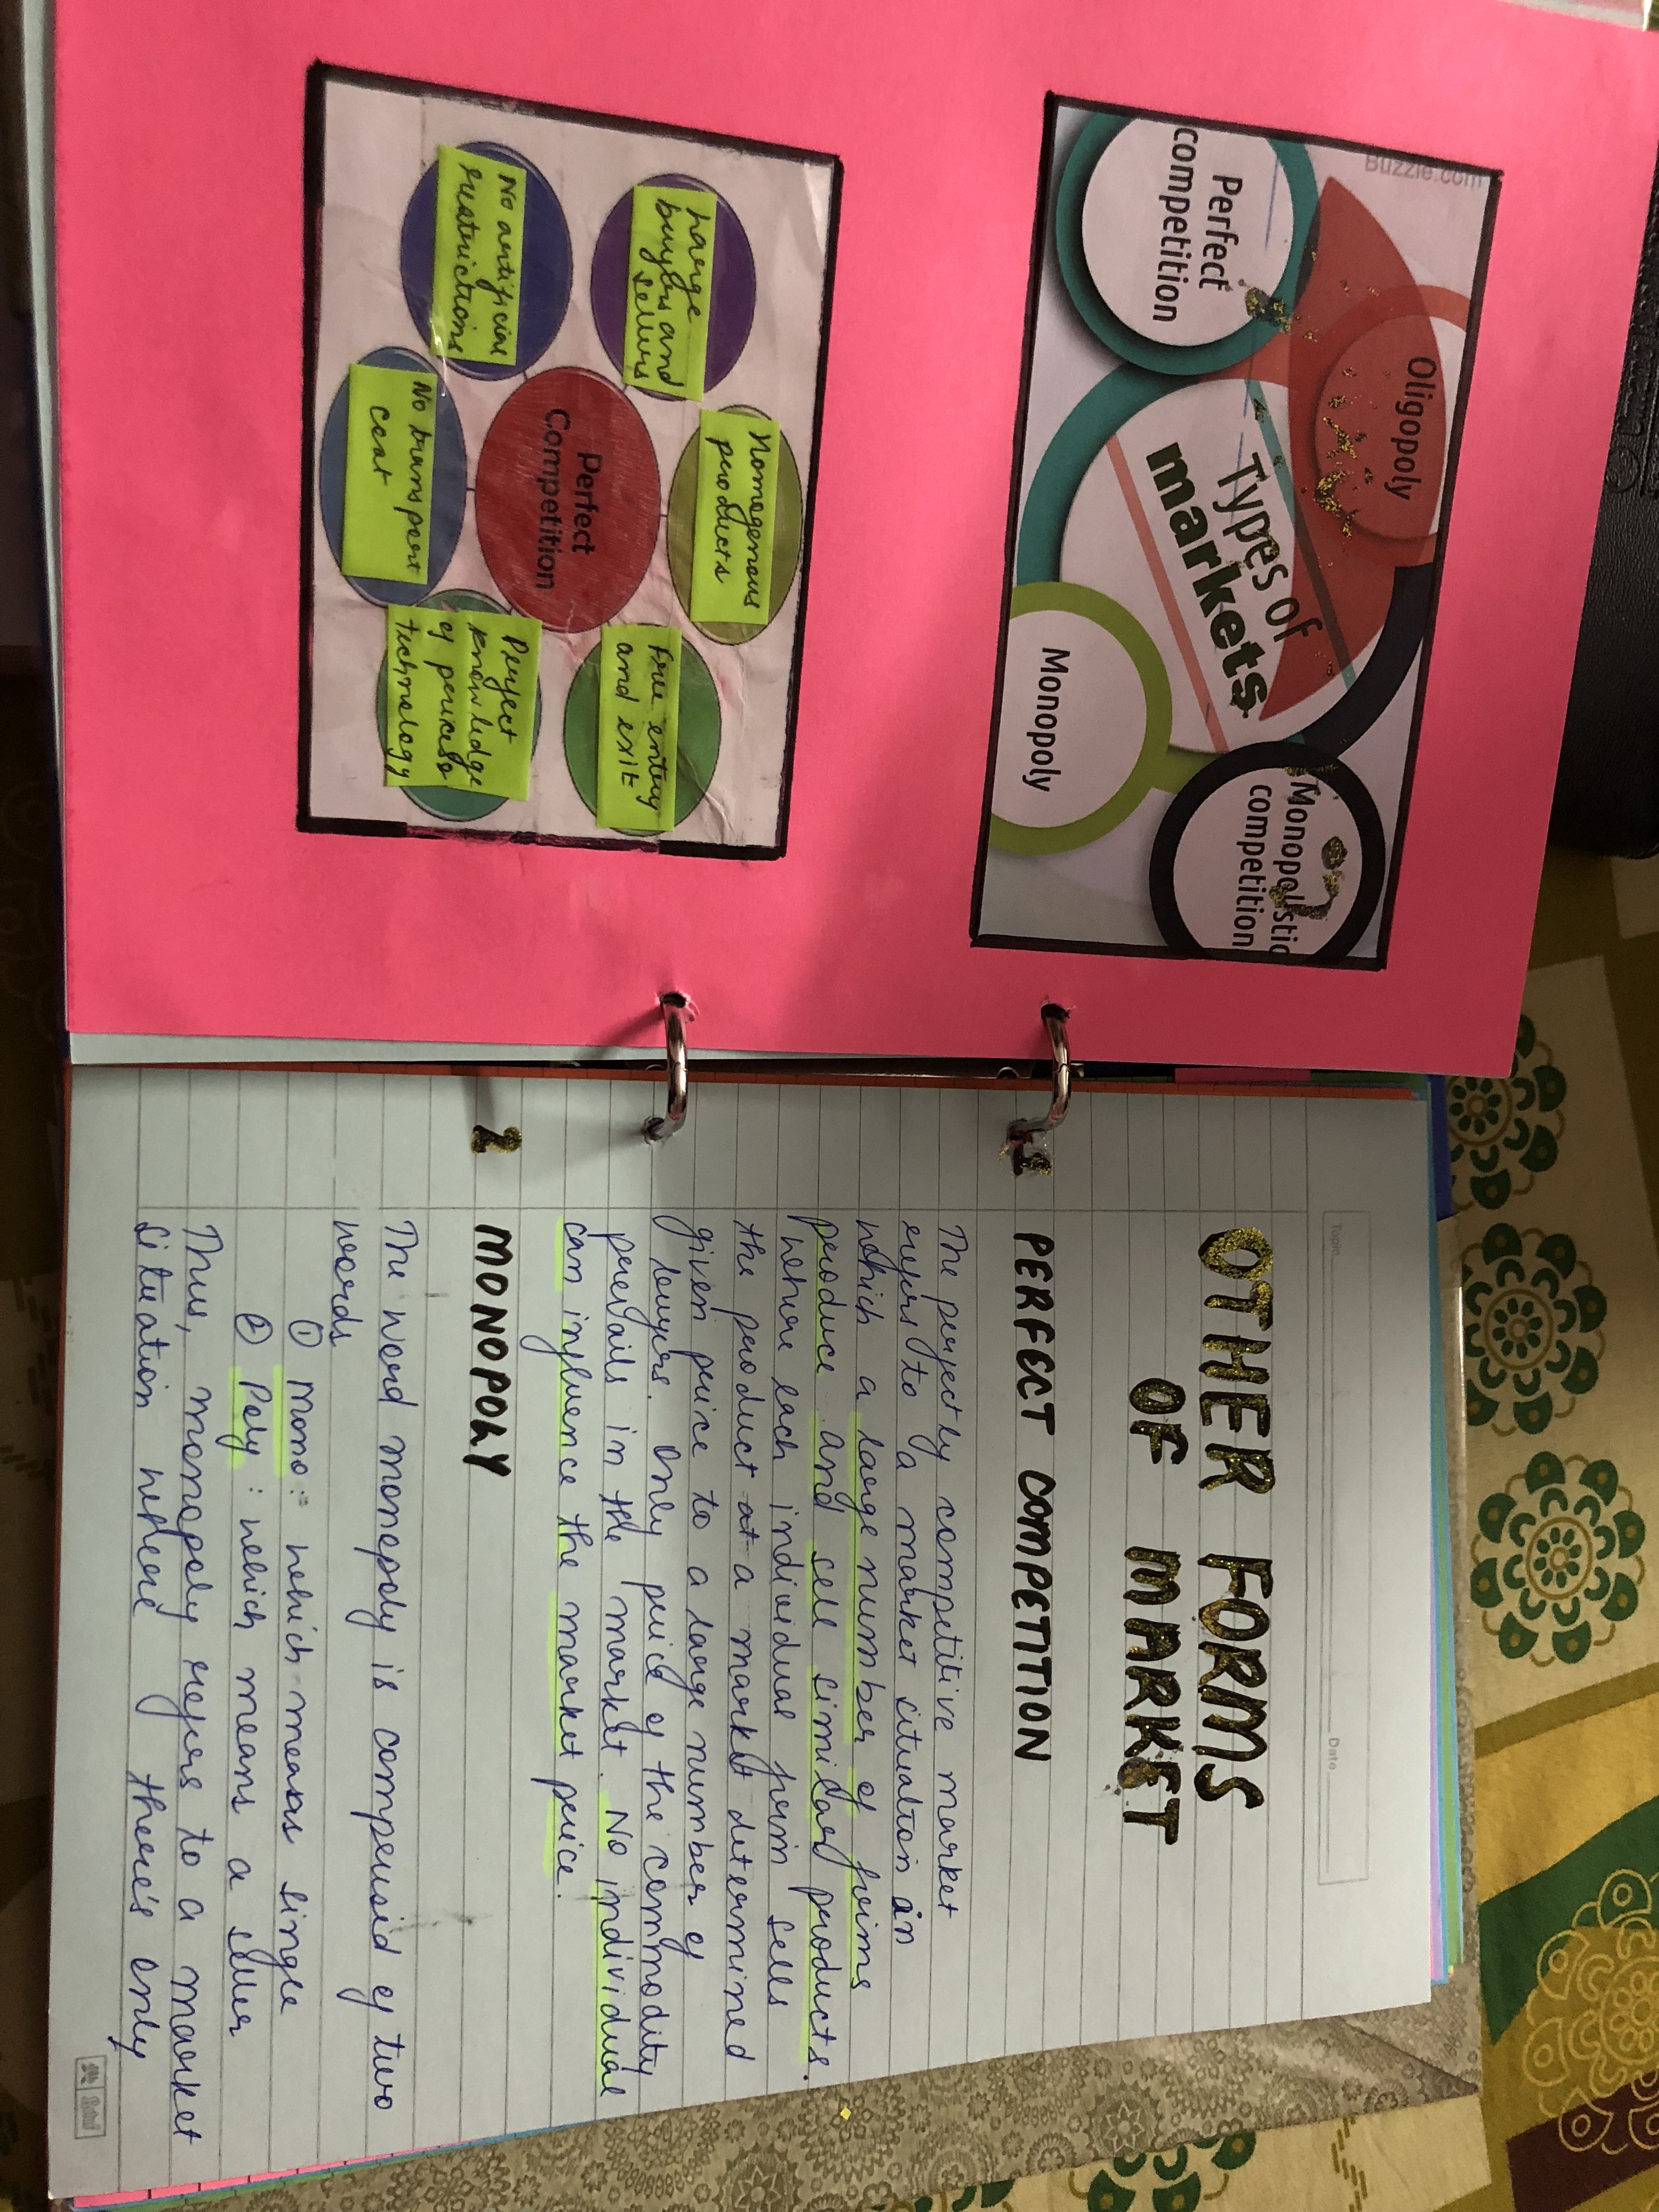 Buzzle.com
Oligopoly
Perfect
competition
Types of
markets
Monopolistic
competition
Monopoly
Large
buyers and
sellers
Homogenous
products
Free entry
and exit
Perfect
Competition
No artificial
restrictions
No transport
cost
Perfect
knowledge
of prices &
technology
Topic
Date
OTHER FORMS
OF MARKET
1 PERFECT COMPETITION
The perfectly competitive market
refers to a market situation in
which a large number of firms
produce and sell similar products.
where each individual firm sells
the product at a market determined
given price to a large number of
buyers. Only price of the commodity
prevails in the market. No individual
can influence the market price.
2 MONOPOLY
The word monopoly is comprised of two
words
① Mono:- which means single
② Poly : which means a seller
Thus, monopoly refers to a market
situation where there's only